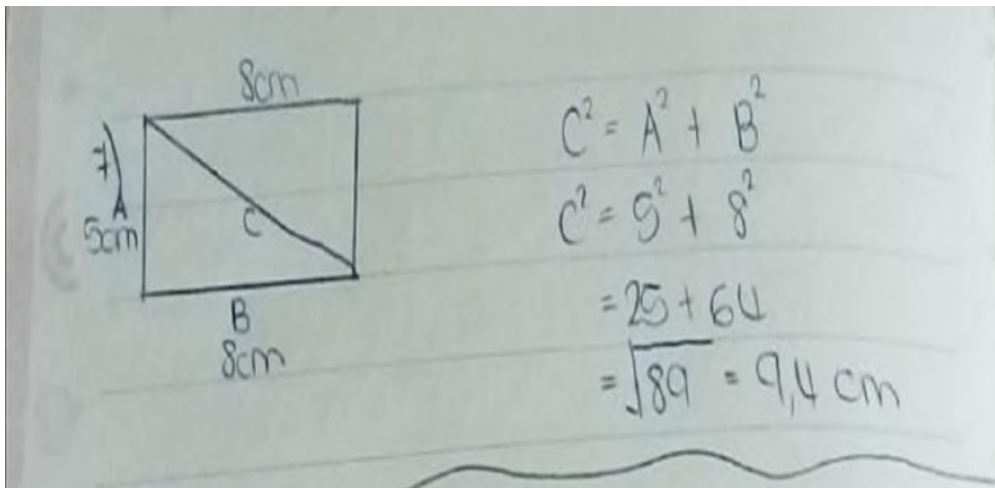 8cm
7
A
5cm
C
B
8cm
C² = A² + B²
C² = 5² + 8²
= 25 + 64
= √89 = 9,4 cm